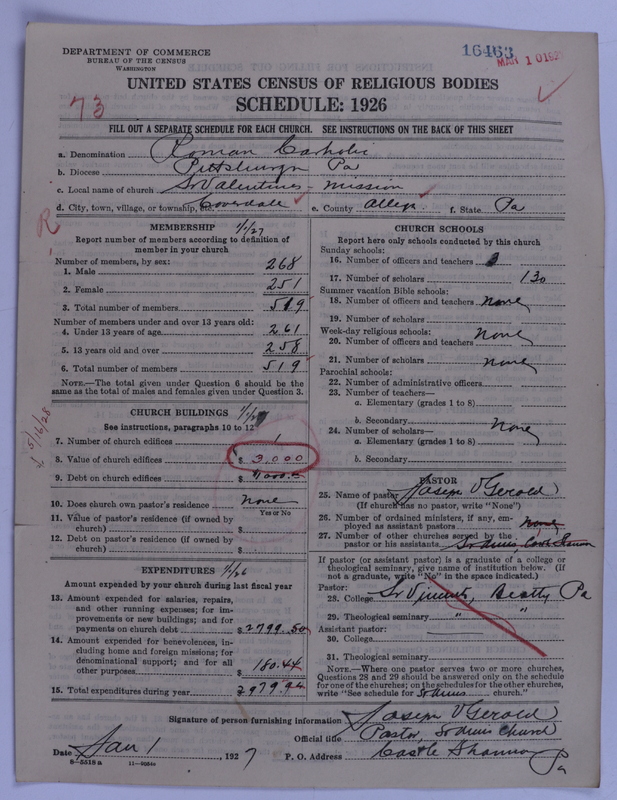 DEPARTMENT OF COMMERCE
BUREAU OF THE CENSUS
WASHINGTON
16463
MAR 10 192
UNITED STATES CENSUS OF RELIGIOUS BODIES
73
SCHEDULE: 1926
FILL OUT A SEPARATE SCHEDULE FOR EACH CHURCH. SEE INSTRUCTIONS ON THE BACK OF THIS SHEET
a. Denomination Roman Catholic
b. Diocese Pittsburgh Pa
c. Local name of church St Valentines - mission
d. City, town, village, or township, etc. Coverdale e. County Alleg. f. State Pa
R
MEMBERSHIP 1/1/27
Report number of members according to definition of
member in your church
Number of members, by sex:
1. Male 268
2. Female 251
3. Total number of members 519
Number of members under and over 13 years old:
4. Under 13 years of age 261
5. 13 years old and over 258
6. Total number of members 519
NOTE.—The total given under Question 6 should be the
same as the total of males and females given under Question 3.
CHURCH BUILDINGS
See instructions, paragraphs 10 to 12
5/16/28
7. Number of church edifices 1
8. Value of church edifices $ 3,000
9. Debt on church edifices $
10. Does church own pastor's residence none
Yes or No
11. Value of pastor's residence (if owned by
church) $
12. Debt on pastor's residence (if owned by
church) $
EXPENDITURES
Amount expended by your church during last fiscal year
13. Amount expended for salaries, repairs,
and other running expenses; for im-
provements or new buildings; and for
payments on church debt $ 2799.50
14. Amount expended for benevolences, in-
cluding home and foreign missions; for
denominational support; and for all
other purposes 180.44
15. Total expenditures during year 2979.94
CHURCH SCHOOLS
Report here only schools conducted by this church
Sunday schools:
16. Number of officers and teachers 3
17. Number of scholars 130
Summer vacation Bible schools:
18. Number of officers and teachers none
19. Number of scholars
Week-day religious schools:
20. Number of officers and teachers none
21. Number of scholars none
Parochial schools:
22. Number of administrative officers
23. Number of teachers—
a. Elementary (grades 1 to 8)
b. Secondary none
24. Number of scholars—
a. Elementary (grades 1 to 8)
b. Secondary
PASTOR
25. Name of pastor Joseph V Gerold
(If church has no pastor, write "None")
26. Number of ordained ministers, if any, em-
ployed as assistant pastors none
27. Number of other churches served by the
pastor or his assistants St Anns, Castle Shannon
If pastor (or assistant pastor) is a graduate of a college or
theological seminary, give name of institution below. (If
not a graduate, write "No" in the space indicated.)
Pastor:
28. College St Vincents, Beatty Pa
29. Theological seminary " "
Assistant pastor:
30. College
31. Theological seminary
NOTE.—Where one pastor serves two or more churches,
Questions 28 and 29 should be answered only on the schedule
for one of the churches; on the schedules for the other churches,
write "See schedule for St Anns church."
Signature of person furnishing information Joseph V Gerold
Official title Pastor, St Anns Church
Date Jan 1 1927 P. O. Address Castle Shannon Pa
8-5518a